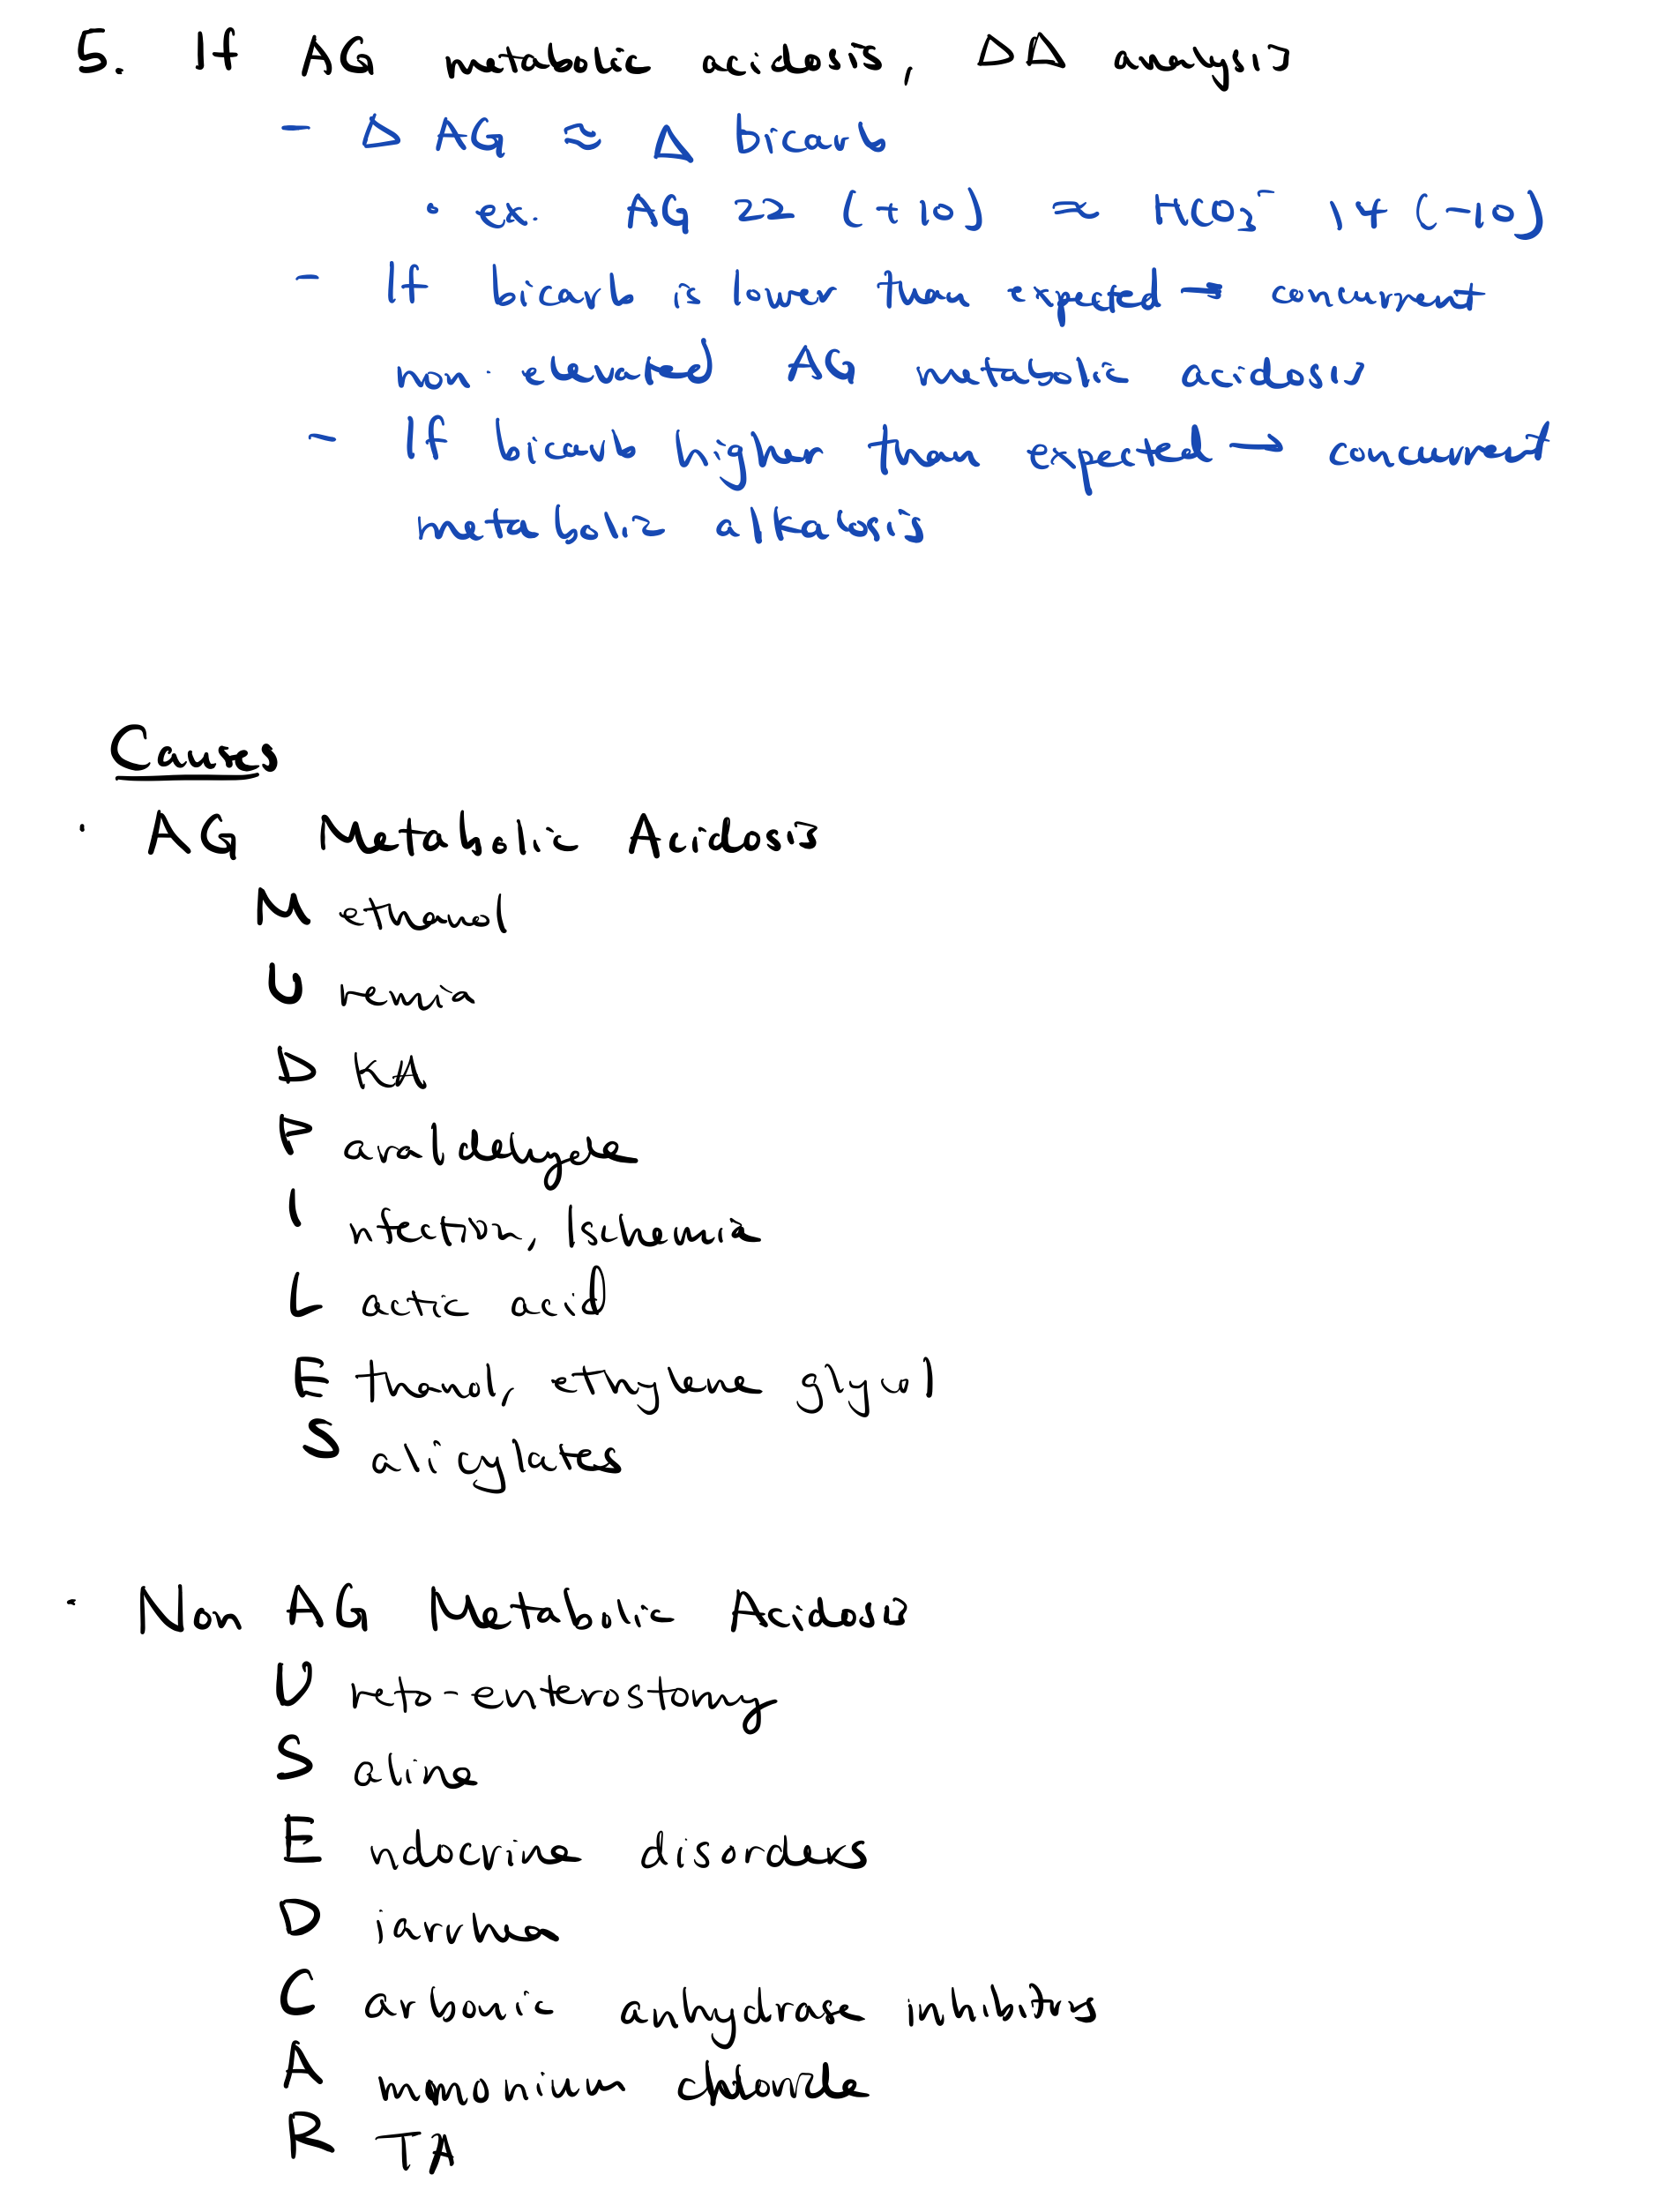 5. If AG metabolic acidosis, ΔΔ analysis
- Δ AG ≈ Δ bicarb
• ex. AG 22 (+10) ≈ HCO3⁻ 14 (-10)
- If bicarb is lower than expected → concurrent
non-elevated AG metabolic acidosis
- If bicarb higher than expected → concurrent
metabolic alkalosis
Causes
· AG Metabolic Acidosis
Methanol
Uremia
DKA
Paraldehyde
Infection, Ischemia
Lactic acid
Ethanol, ethylene glycol
Salicylates
· Non AG Metabolic Acidosis
Ureto-enterostomy
Saline
Endocrine disorders
Diarrhea
Carbonic anhydrase inhibitors
Ammonium chloride
RTA